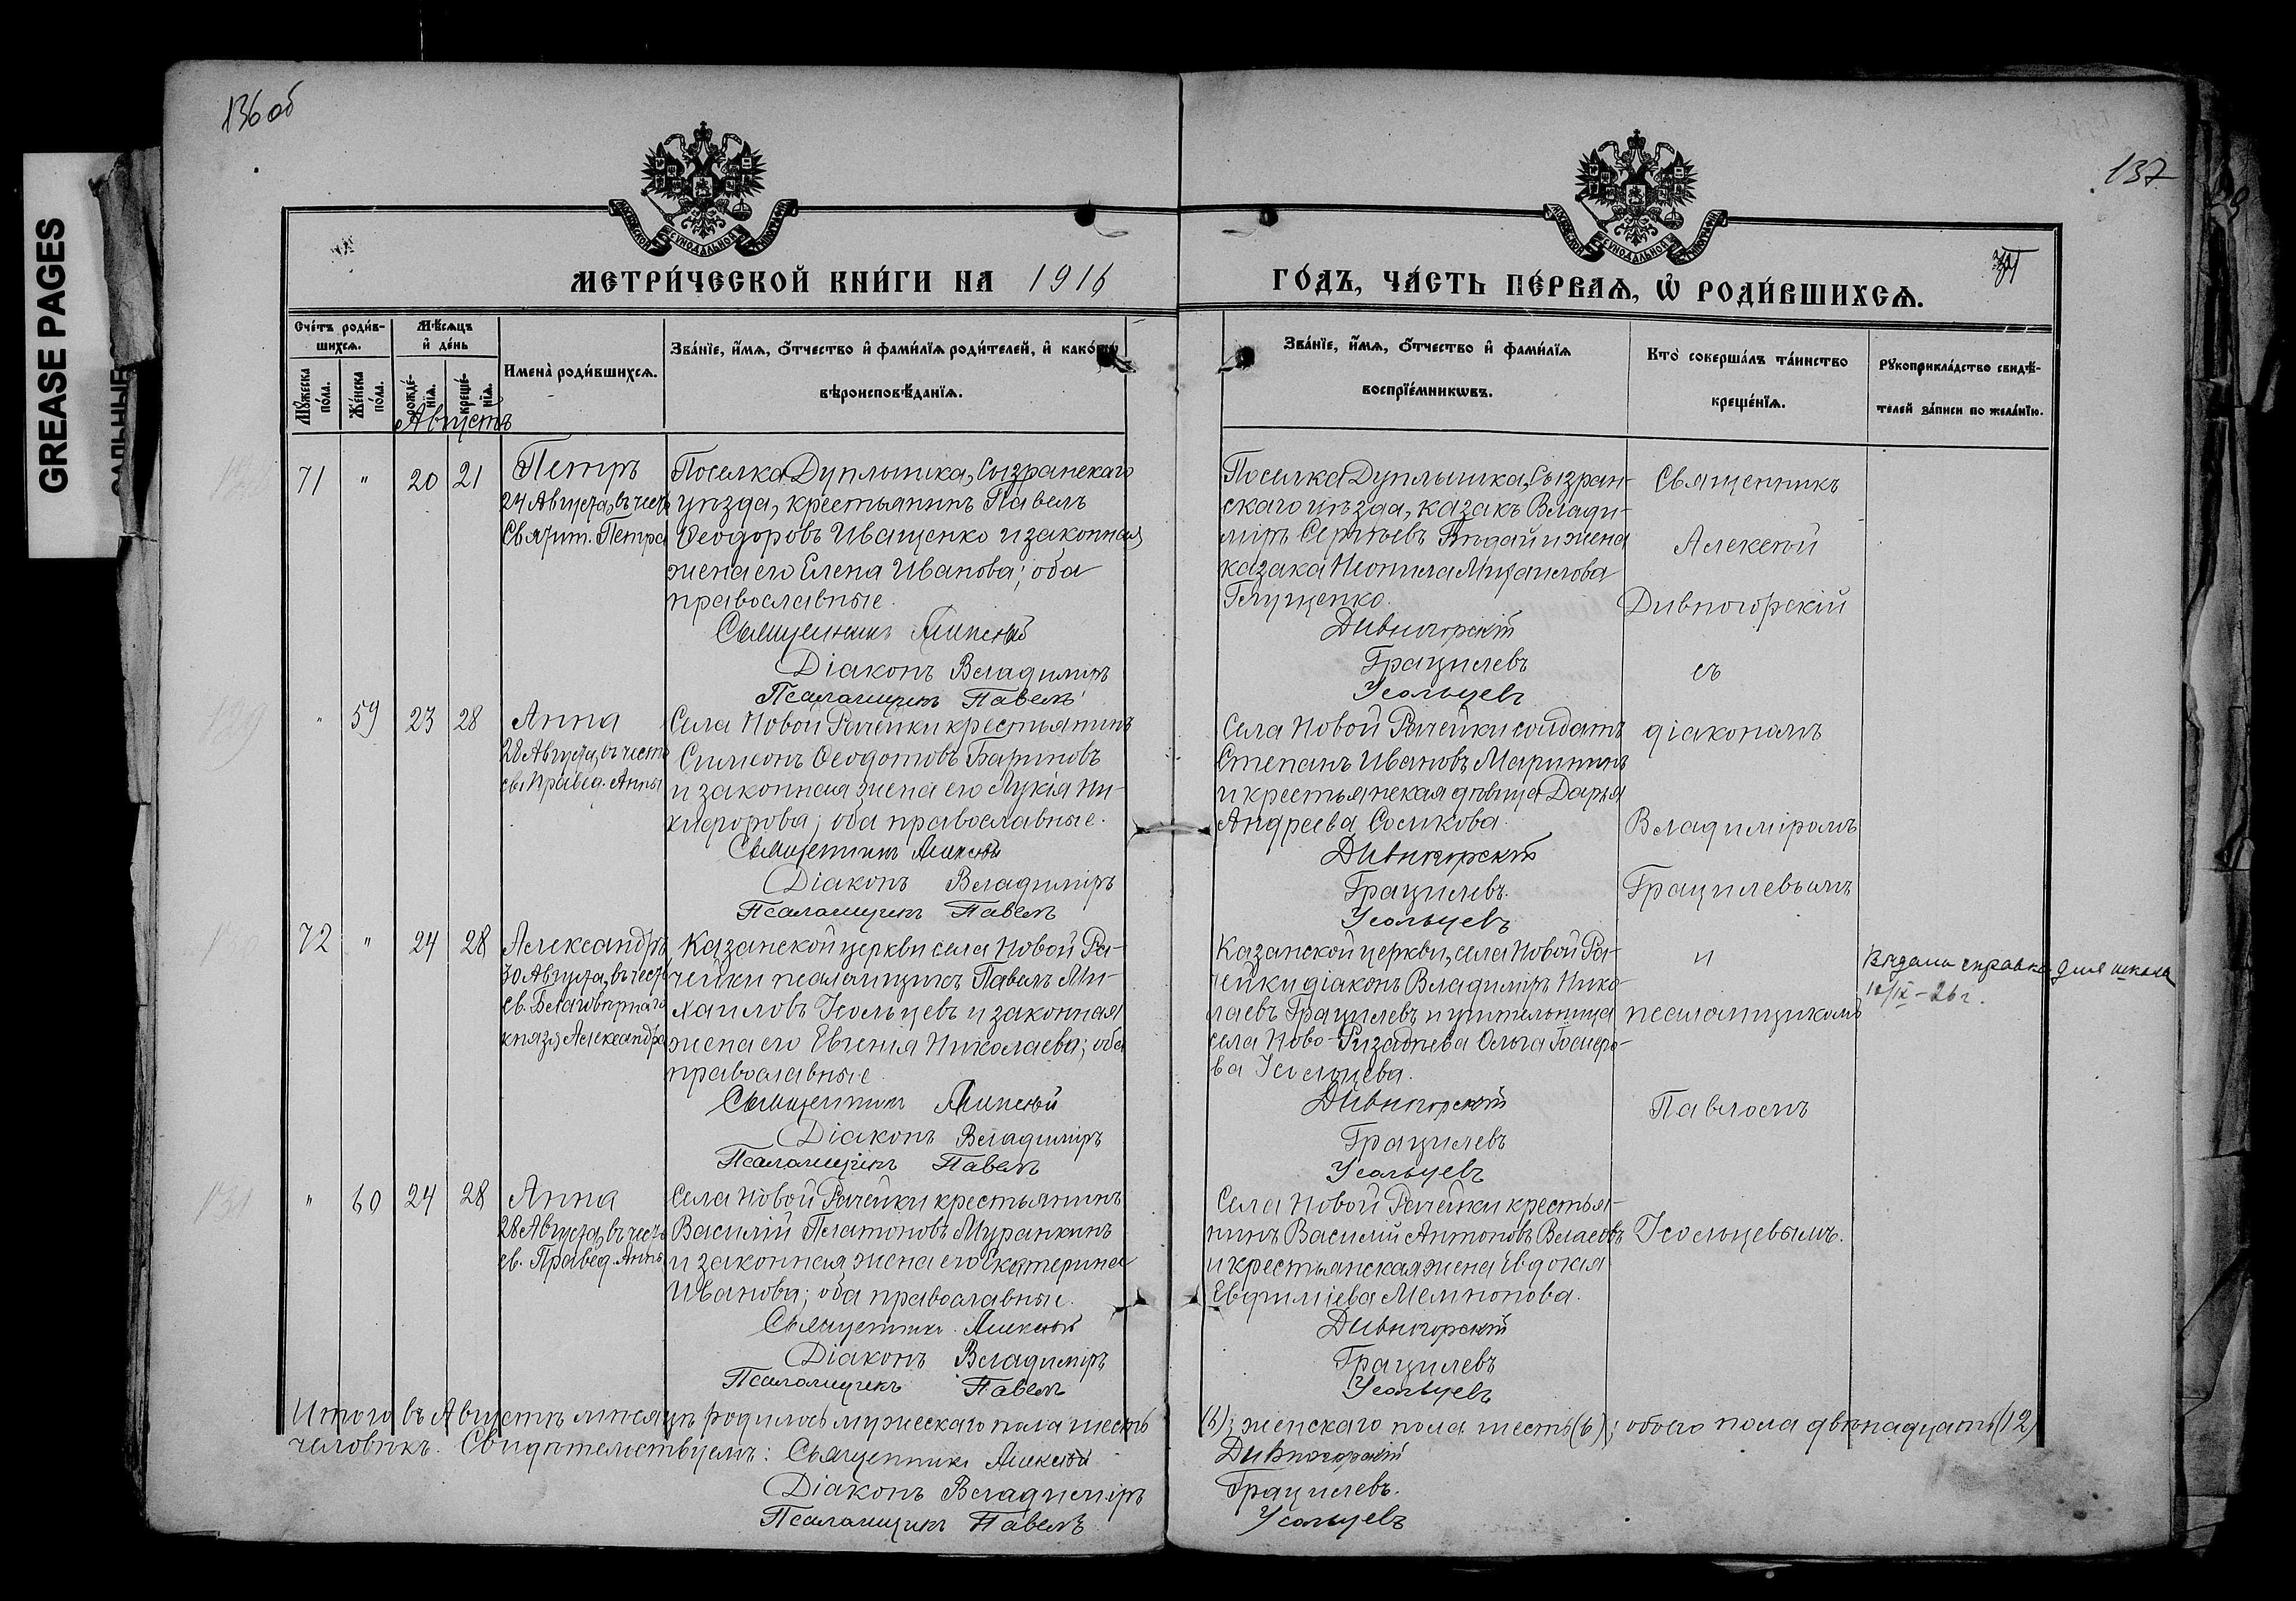 136 об
137
GREASE PAGES
МЕТРИ́ЧЕСКОЙ КНИ́ГИ НА 1916
ГО́ДЪ, ЧА́СТЬ ПЕ́РВАѦ, Ѽ РОДИ́ВШИХСѦ.
Сче́тъ роди́в-
шихсѧ.
Мꙋ́жеска по́ла.
Же́нска по́ла.
Мѣ́сѧцъ и҆ де́нь
рожде́-нїѧ.
креще́-нїѧ.
Августъ
Имена̀ роди́вшихсѧ.
Зва́нїе, и҆́мѧ, ѻ҆́тчество и҆ фами́лїѧ роди́телей, и҆
вѣроисповѣ́данїѧ.
Зва́нїе, и҆́мѧ, ѻ҆́тчество и҆ фами́лїѧ
воспрїе́мникѡвъ.
Кто̀ соверша́лъ та́инство
креще́нїѧ.
Рꙋкоприкла́дство свидѣ́-
телей за́писи по жела́нїю.
71 " 20 21
Петръ
24 Августа, въ честь
Святит. Петра
Поселка Дуплышка, Сызранскаго
уѣзда, крестьянинъ Павелъ
Ѳеодоровъ Иващенко и законная
жена его Елена Иванова; оба
православные.
Священникъ Алексѣй
Діаконъ Владиміръ
Псаломщикъ Павелъ
Поселка Дуплышка, Сызран-
скаго уѣзда, казакъ Влади-
міръ Сергѣевъ и жена
казака Неонила Михаилова
Глущенко.
Дивногорскій
Грацилевъ
Усольцевъ
Священникъ
Алексѣй
Дивногорскій
съ
діакономъ
Владиміромъ
Грацилевымъ
и
псаломщикомъ
Павломъ
Усольцевымъ.
129
" 59 23 28
Анна
28 Августа, въ честь
св. Правед. Анны
Села Новой Рачейки крестьянинъ
Симеонъ Ѳеодотовъ Бариновъ
и законная жена его Лукія Ни-
кифорова; оба православные.
Священникъ Алексѣй
Діаконъ Владиміръ
Псаломщикъ Павелъ
Села Новой Рачейки солдатъ
Степанъ Ивановъ Марининъ
и крестьянская дѣвица Дарья
Андреева Сосикова.
Дивногорскій
Грацилевъ.
Усольцевъ
72 " 24 28
Александръ
30 Августа, въ честь
св. Благовѣрнаго
князя Александра
Казанской церкви села Новой Ра-
чейки псаломщикъ Павелъ Ми-
хаиловъ Усольцевъ и законная
жена его Евгенія Николаева; оба
православные.
Священникъ Алексѣй
Діаконъ Владиміръ
Псаломщикъ Павелъ
Казанской церкви, села Новой Ра-
чейки діаконъ Владиміръ Нико-
лаевъ Грацилевъ и учительница
села Ново- Ольга Іосифо-
ва Усольцева.
Дивногорскій
Грацилевъ
Усольцевъ
Выдана справка для школы
10/IX-26 г.
131
" 60 24 28
Анна
28 Августа, въ честь
св. Правед. Анны
Села Новой Рачейки крестьянинъ
Василій Платоновъ Муранкинъ
и законная жена его Екатерина
Иванова; оба православные.
Священникъ Алексѣй
Діаконъ Владиміръ
Псаломщикъ Павелъ
Села Новой Рачейки крестья-
нинъ Василій Антоновъ Власовъ
и крестьянская жена Евдокія
Евфиміева
Дивногорскій
Грацилевъ
Усольцевъ
Итого въ Августѣ мѣсяцѣ родилось мужескаго пола шесть (6); женскаго пола шесть (6); обоего пола двѣнадцать (12)
человѣкъ. Свидѣтельствуемъ: Священникъ Алексѣй Дивногорскій
Діаконъ Владиміръ Грацилевъ.
Псаломщикъ Павелъ Усольцевъ